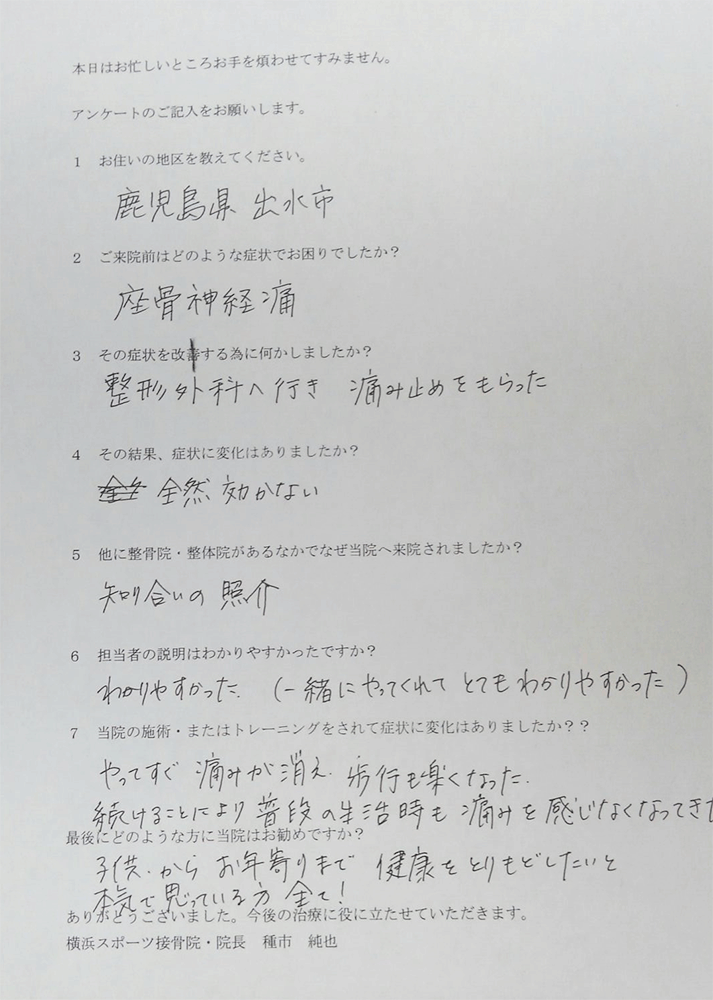 本日はお忙しいところお手を煩わせてすみません。
アンケートのご記入をお願いします。
1 お住いの地区を教えてください。
鹿児島県 出水市
2 ご来院前はどのような症状でお困りでしたか？
座骨神経痛
3 その症状を改善する為に何かしましたか？
整形外科へ行き 痛み止めをもらった
4 その結果、症状に変化はありましたか？
全然 効かない
5 他に整骨院・整体院があるなかでなぜ当院へ来院されましたか？
知り合いの 照介
6 担当者の説明はわかりやすかったですか？
わかりやすかった （一緒にやってくれて とてもわかりやすかった）
7 当院の施術・またはトレーニングをされて症状に変化はありましたか？？
やってすぐ 痛みが消え、歩行も楽くなった.
続けることにより 普段の生活時も 痛みを感じなくなってきた
最後にどのような方に当院はお勧めですか？
子供からお年寄りまで 健康をとりもどしたいと
本気で思っている方 全て！
ありがとうございました。今後の治療に役に立たせていただきます。
横浜スポーツ接骨院・院長 種市 純也